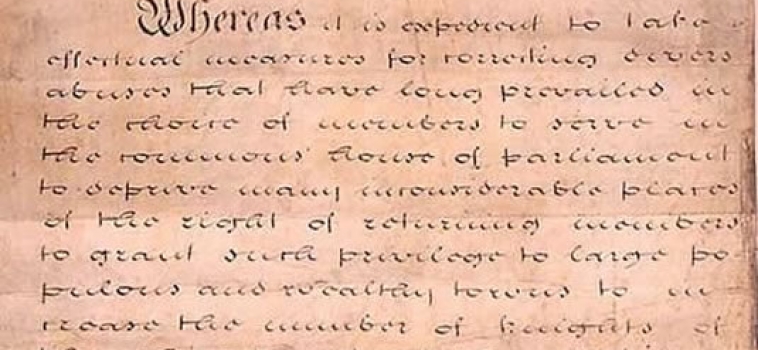 Whereas it is expedient to take
effectual measures for correcting divers
abuses that have long prevailed in
the choice of members to serve in
the commons house of parliament
to deprive many inconsiderable places
of the right of returning members
to grant such privilege to large po
pulous and wealthy towns to in
crease the number of knights of